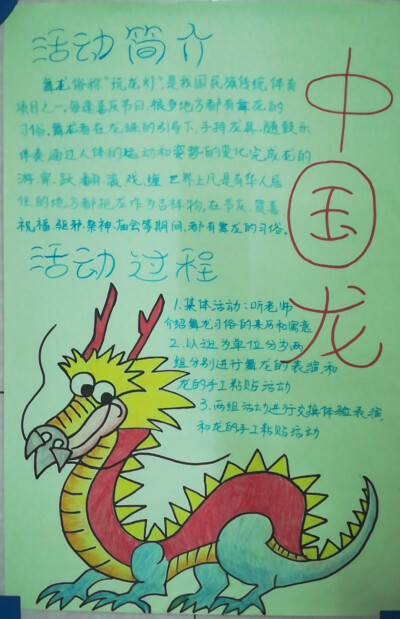 活动简介
舞龙俗称"玩龙灯",是我国民族传统体育
项目之一。每逢喜庆节日,很多地方都有舞龙的
习俗。舞龙者在龙珠的引导下,手持龙具,随鼓乐
伴奏,通过人体的运动和姿势的变化完成龙的
游、穿、跃、翻、滚、戏、缠,世界上凡是有华人居
住的地方都把龙作为吉祥物,在节庆、贺喜
祝福、驱邪、祭神、庙会等期间,都有舞龙的习俗。
中国龙
活动过程
1.集体活动:听老师
介绍舞龙习俗的来历和寓意
2.以班为单位分为两
组分别进行舞龙的表演和
龙的手工粘贴活动
3.两组活动进行交换体验表演
和龙的手工粘贴活动